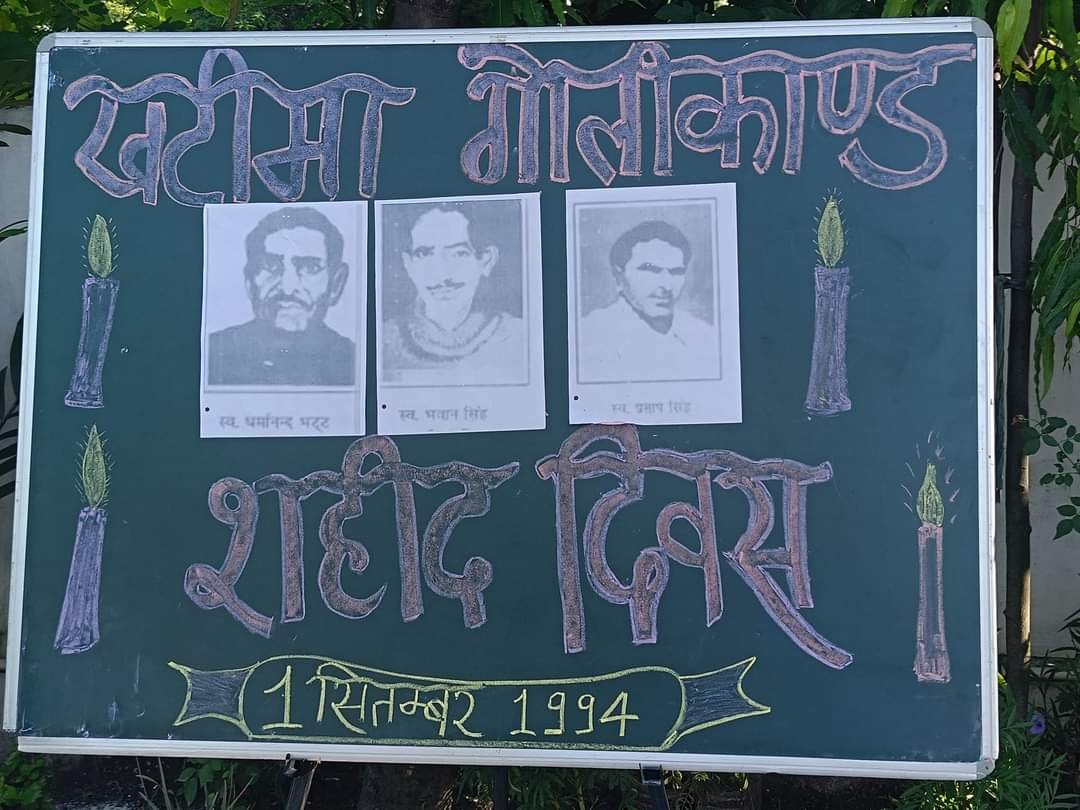 खटीमा गोलीकाण्ड
स्व. धर्मानन्द भट्ट
स्व. भवान सिंह
स्व. प्रताप सिंह
शहीद दिवस
1 सितम्बर 1994